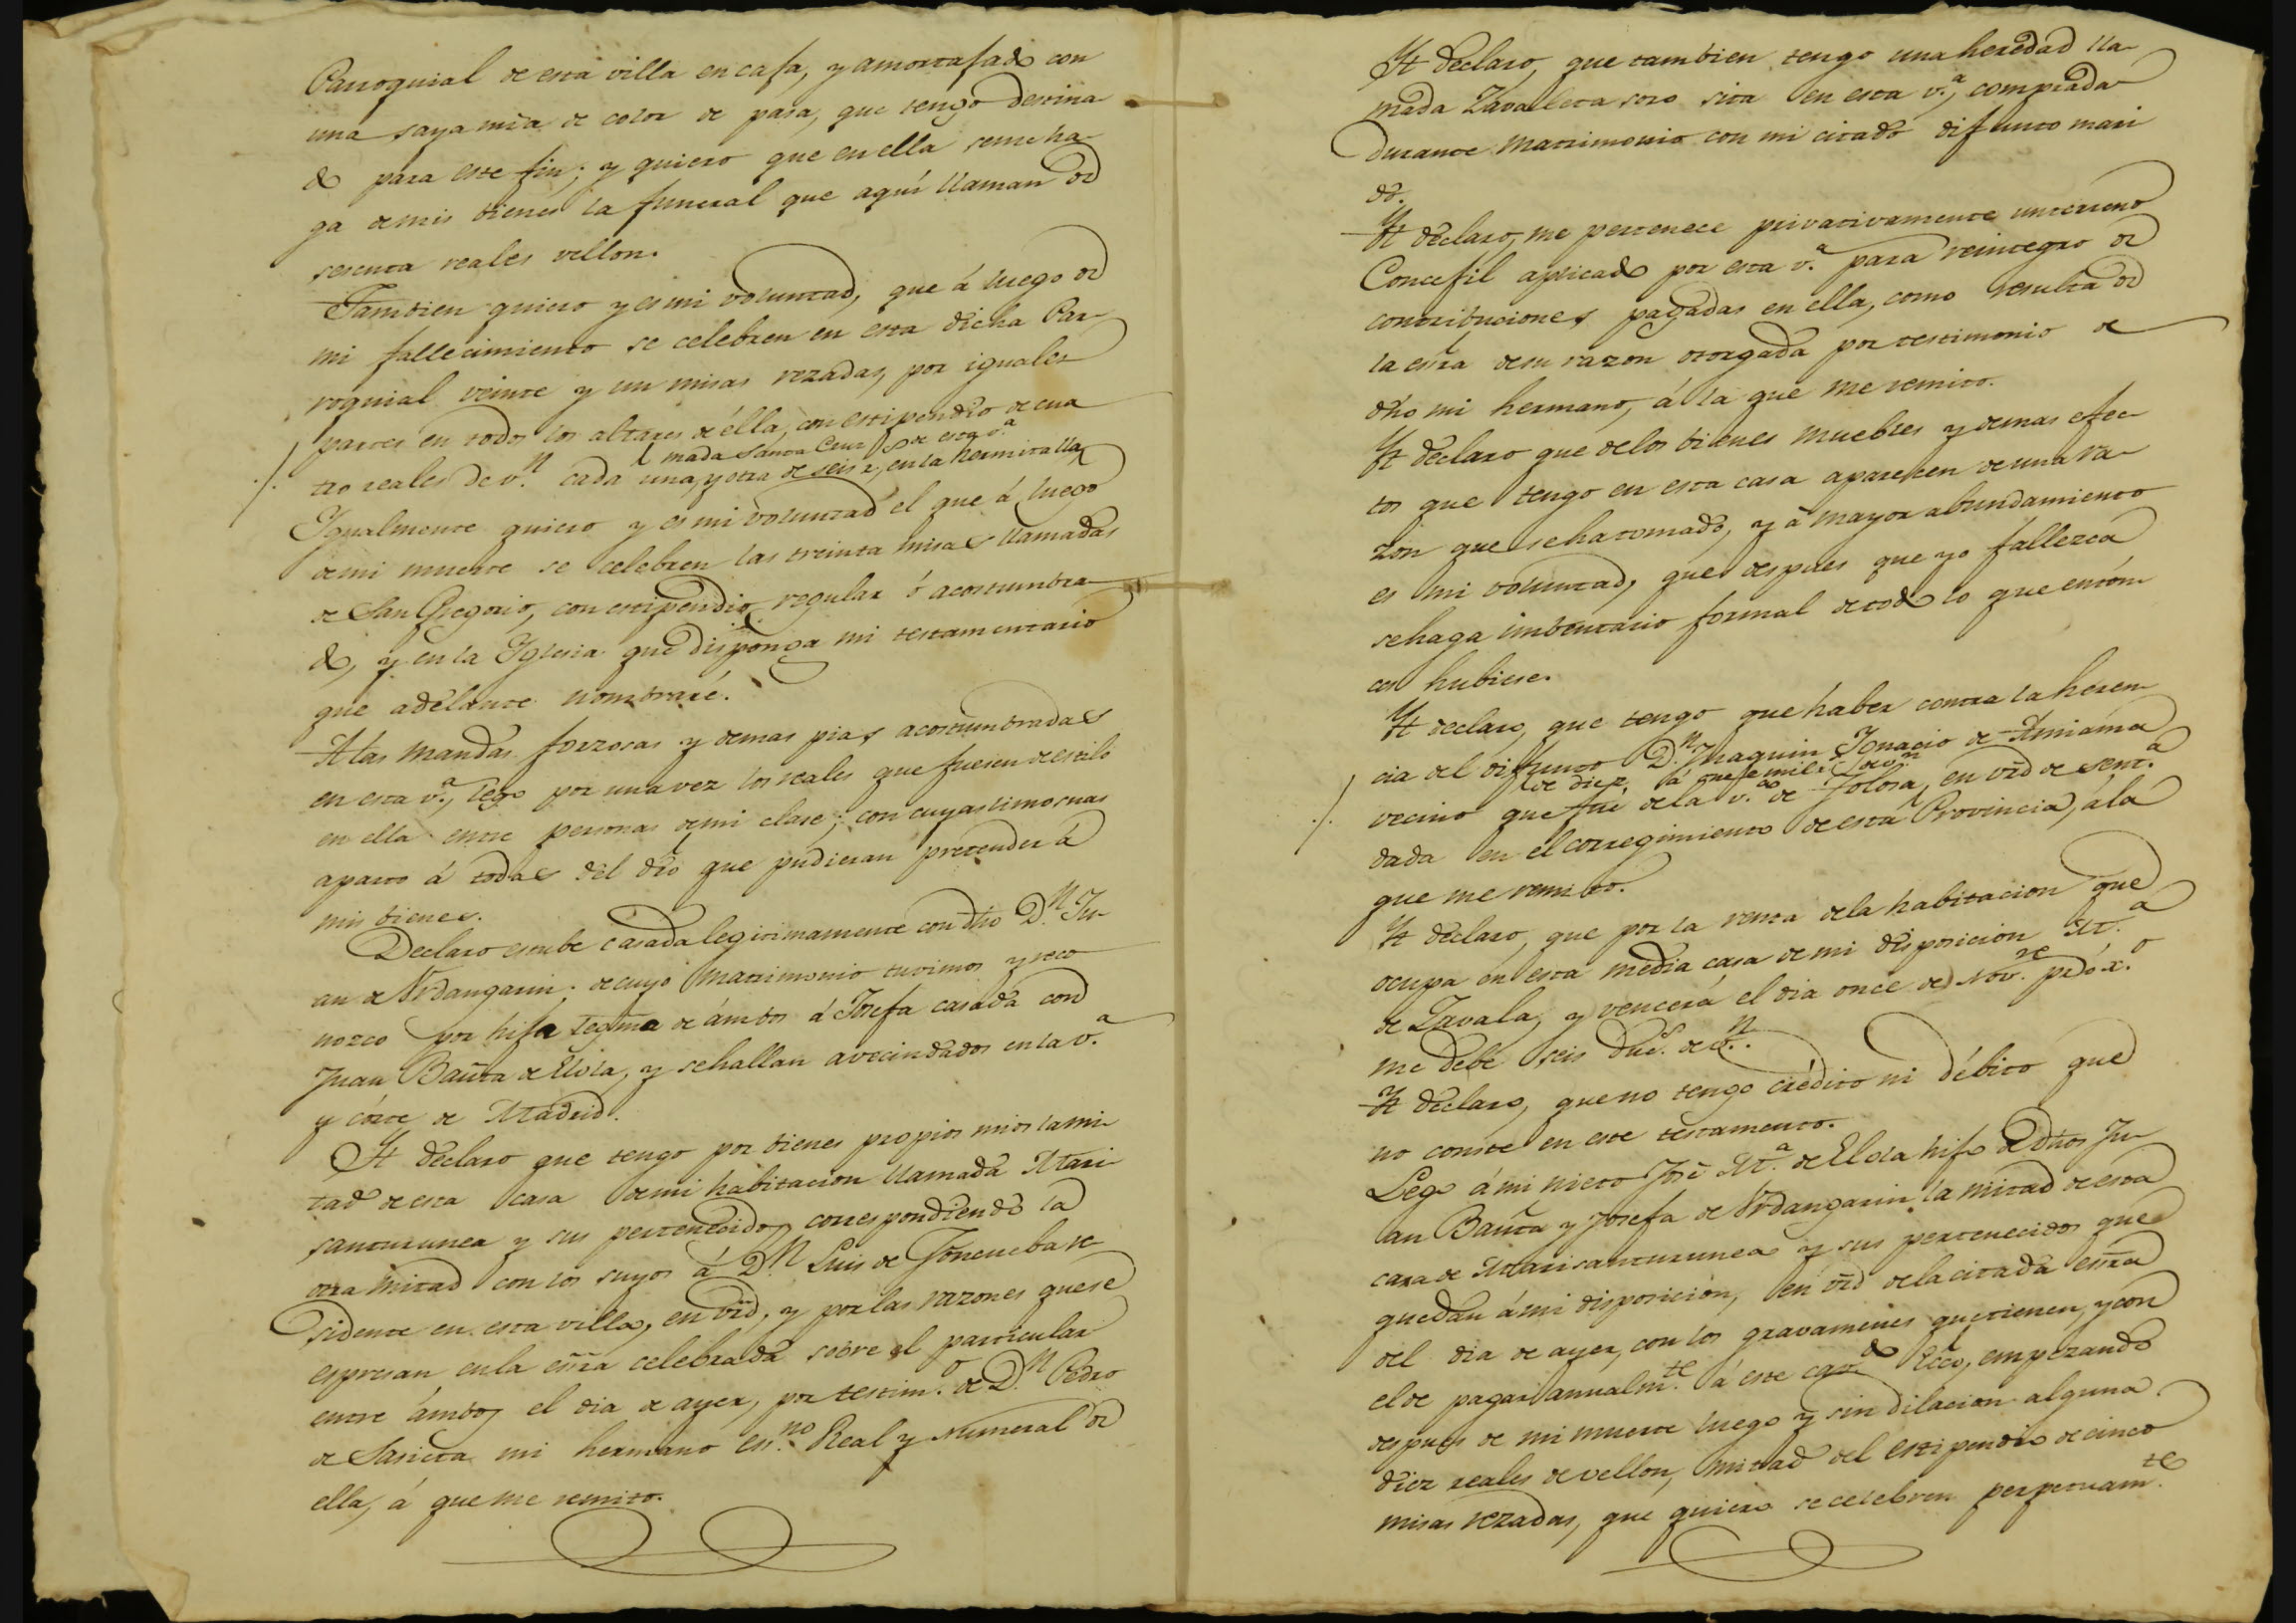 Parroquial de esta villa en cafa, y amortafado con
una saya mia de color de pasa, que tengo destina-
do para este fin; y quiero que en ella se me ha-
ga de mis bienes la funeral que aquí llaman de
sesenta reales vellon.
Tambien quiero y es mi voluntad, que á luego de
mi fallecimiento se celebren en esta dicha Par-
roquial veinte y un misas rezadas, por iguales
partes en todos los altares de élla, con estipendio de cua
mada Santa Cruz de esta v.ª
tro reales de v.n cada una, y otra de seis r.s, en la hermita lla
Igualmente quiero y es mi voluntad el que á luego
de mi muerte se celebren las treinta misas llamadas
de San Gregorio, con estipendio regular ó acostumbra-
do, y en la Iglesia que disponga mi testamentario
que adelante nombraré.
A las mandas forzosas y demas pias acostumbradas
en esta v.ª, lego por una vez los reales que fuesen de estilo
en ella entre personas de mi clase; con cuyas limosnas
aparto á todas del dro que pudieran pretender á
mis bienes.
Declaro estube casada legitimamente con dho D.n Ju-
an de Urdangarin; de cuyo matrimonio tuvimos y reco
nozco por hija legma de ámbos á Josefa casada con
Juan Bauta de Elola, y se hallan avecindados en la v.ª
y córte de Madrid.
It declaro que tengo por bienes propios mios la mi-
tad de esta casa de mi habitacion llamada Mari-
santurunea y sus pertenecidos, correspondiendo la
otra mitad con los suyos á D.n Luis de Goñeneba re-
sidente en esta villa, en vrd, y por las razones que se
espresan en la esra celebrada sobre el particular
entre ámbos el dia de ayer, por testim.o de D.n Pedro
de Sasieta mi hermano es.no Real y Numeral de
ella, á que me remito.
It declaro, que tambien tengo una heredad lla-
mada Zavalleta soro sita en esta v.ª, comprada
durante matrimonio con mi citado difunto mari
do.
It declaro, me pertenece privativamente un terreno
Concefil aplicado por esta v.ª para reintegro de
contribuciones pagadas en ella, como resulta de
la esra de su razon otorgada por testimonio de
dho mi hermano, á la que me remito.
It declaro que de los bienes muebles y demas efec-
tos que tengo en esta casa aparecen de una ra-
zon que se ha tomado, y á mayor abundamiento
es mi voluntad, que despues que yo fallezca
se haga imbentario formal de todo lo que entón-
ces hubiese.
It declaro, que tengo que háber contra la heren-
cia del difunto D.n Juaquin Ignacio de Amiama
de diez á once mil r.s de v.n
vecino que fué de la v.ª de Tolosa, en vrd de sent.ª
dada en el corregimiento de esta Provincia, á la
que me remito.
It declaro, que por la renta de la habitacion que
ocupa en esta media casa de mi disposicion M.ª
de Zavala, y vencerá el dia once de Nov.re próx.o
me debe seis duc.s de v.n.
It declaro, que no tengo crédito ni débito que
no conste en este testamento.
Lego á mi nieto José M.ª de Elola hifo de dhos Ju-
an Bauta y Josefa de Urdangarin la mitad de esta
casa de Marisanturunea y sus pertenecidos que
quedan á mi disposicion, en vrd de la citada esra
del dia de ayer, con los gravamenes que tienen, y con
el de pagar anualm.te á este cav.do Ecco, empezando
despues de mi muerte luego y sin dilacion alguna
diez reales de vellon, mitad del estipendio de cinco
misas rezadas, que quiero se celebren perpetuam.te